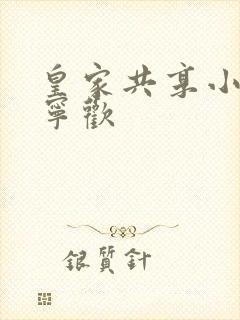 皇家共享小
寧歡
銀質針